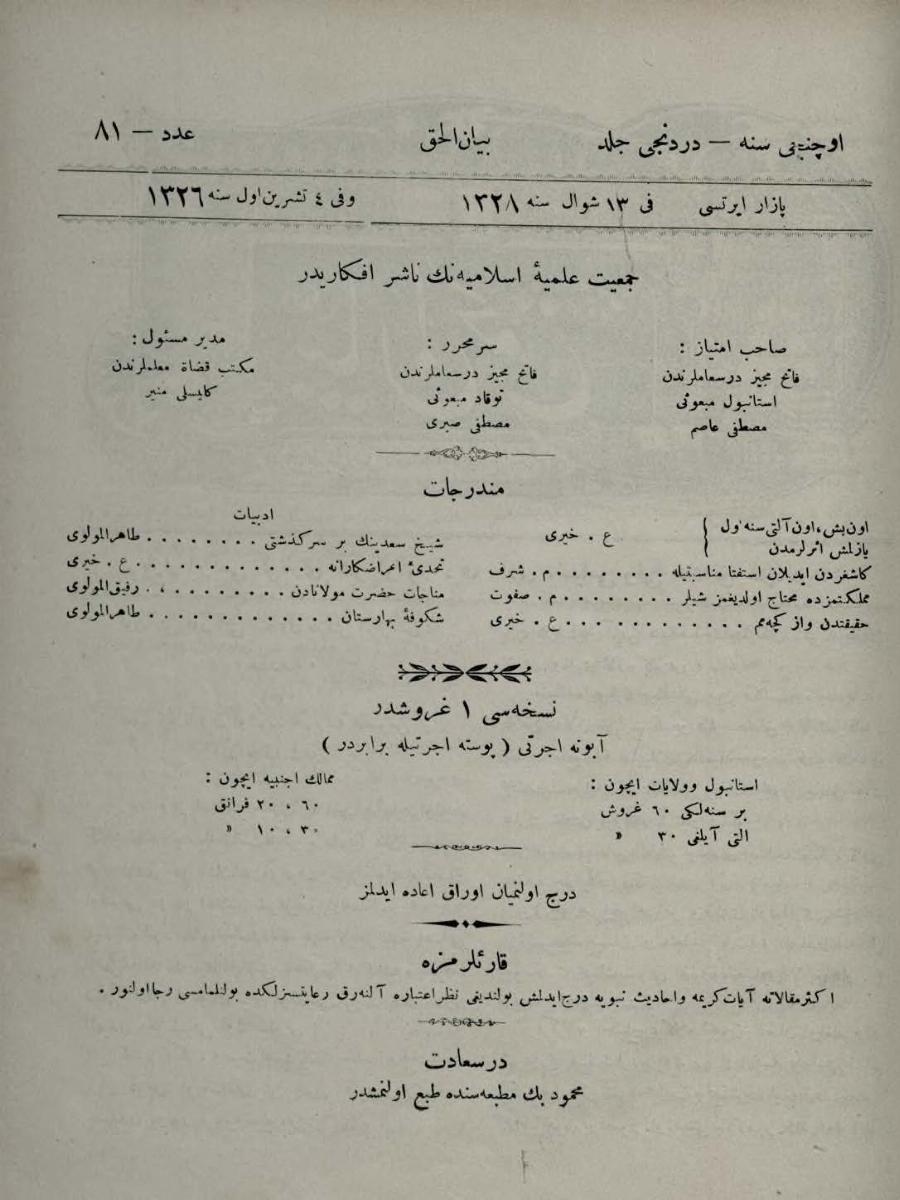 اوچنجی سنه — دردنجی جلد
بیان‌الحق
عدد — ٨١
بازار ایرتسی فی ١٣ شوال سنه ١٣٢٨ وفی ٤ تشرین‌اول سنه ١٣٢٦
جمعیت علمیهٔ اسلامیه‌نك ناشر افکاریدر
صاحب امتیاز :
فاتح مجیز درسعاملرندن
استانبول مبعوثی
مصطفی عاصم
سرمحرر :
فاتح مجیز درسعاملرندن
توقاد مبعوثی
مصطفی صبری
مدیر مسئول :
مکتب قضاة معلملرندن
کلیسلی منیر
مندرجات
اون‌بش، اون‌آلتی سنه اول
یازلمش اثرلرمدن } ع . خیری
کاشغردن ایدیلان استفتا مناسبتیله . . . . . . . . م . شرف
مملکتمزده محتاج اولدیغمز شیلر . . . . . . . . م . صفوت
حقیقتدن واز کچه‌مم . . . . . . . . . . . . ع . خیری
ادبیات
شیخ سعدینك بر سرکذشتی . . . . . . . . طاهرالمولوی
تحدیٔ اعراضکارانه . . . . . . . . . . . . . ع . خیری
مناجات حضرت مولانادن . . . . . . . . . رفیق‌المولوی
شکوفهٔ بهارستان . . . . . . . . . . . . . طاهرالمولوی
نسخه‌سی ١ غروشدر
آبونه اجرتی ( پوسته اجرتیله برابردر )
استانبول وولایات ایچون :
بر سنه‌لکی ٦٠ غروش
التی آیلغی ٣٠ »
ممالك اجنبیه ایچون :
٦٠ ، ٢٠ فرانق
٣٠ ، ١٠ »
درج اولنمیان اوراق اعاده ایدلمز
قارئلرمزه
اکثر مقالاته آیات کریمه واحادیث نبویه درج ایدلمش بولندیغی نظر اعتباره آلنه‌رق رعایتسزلکده بولنلمامسی رجا اولنور .
درسعادت
محمود بك مطبعه‌سنده طبع اولنمشدر